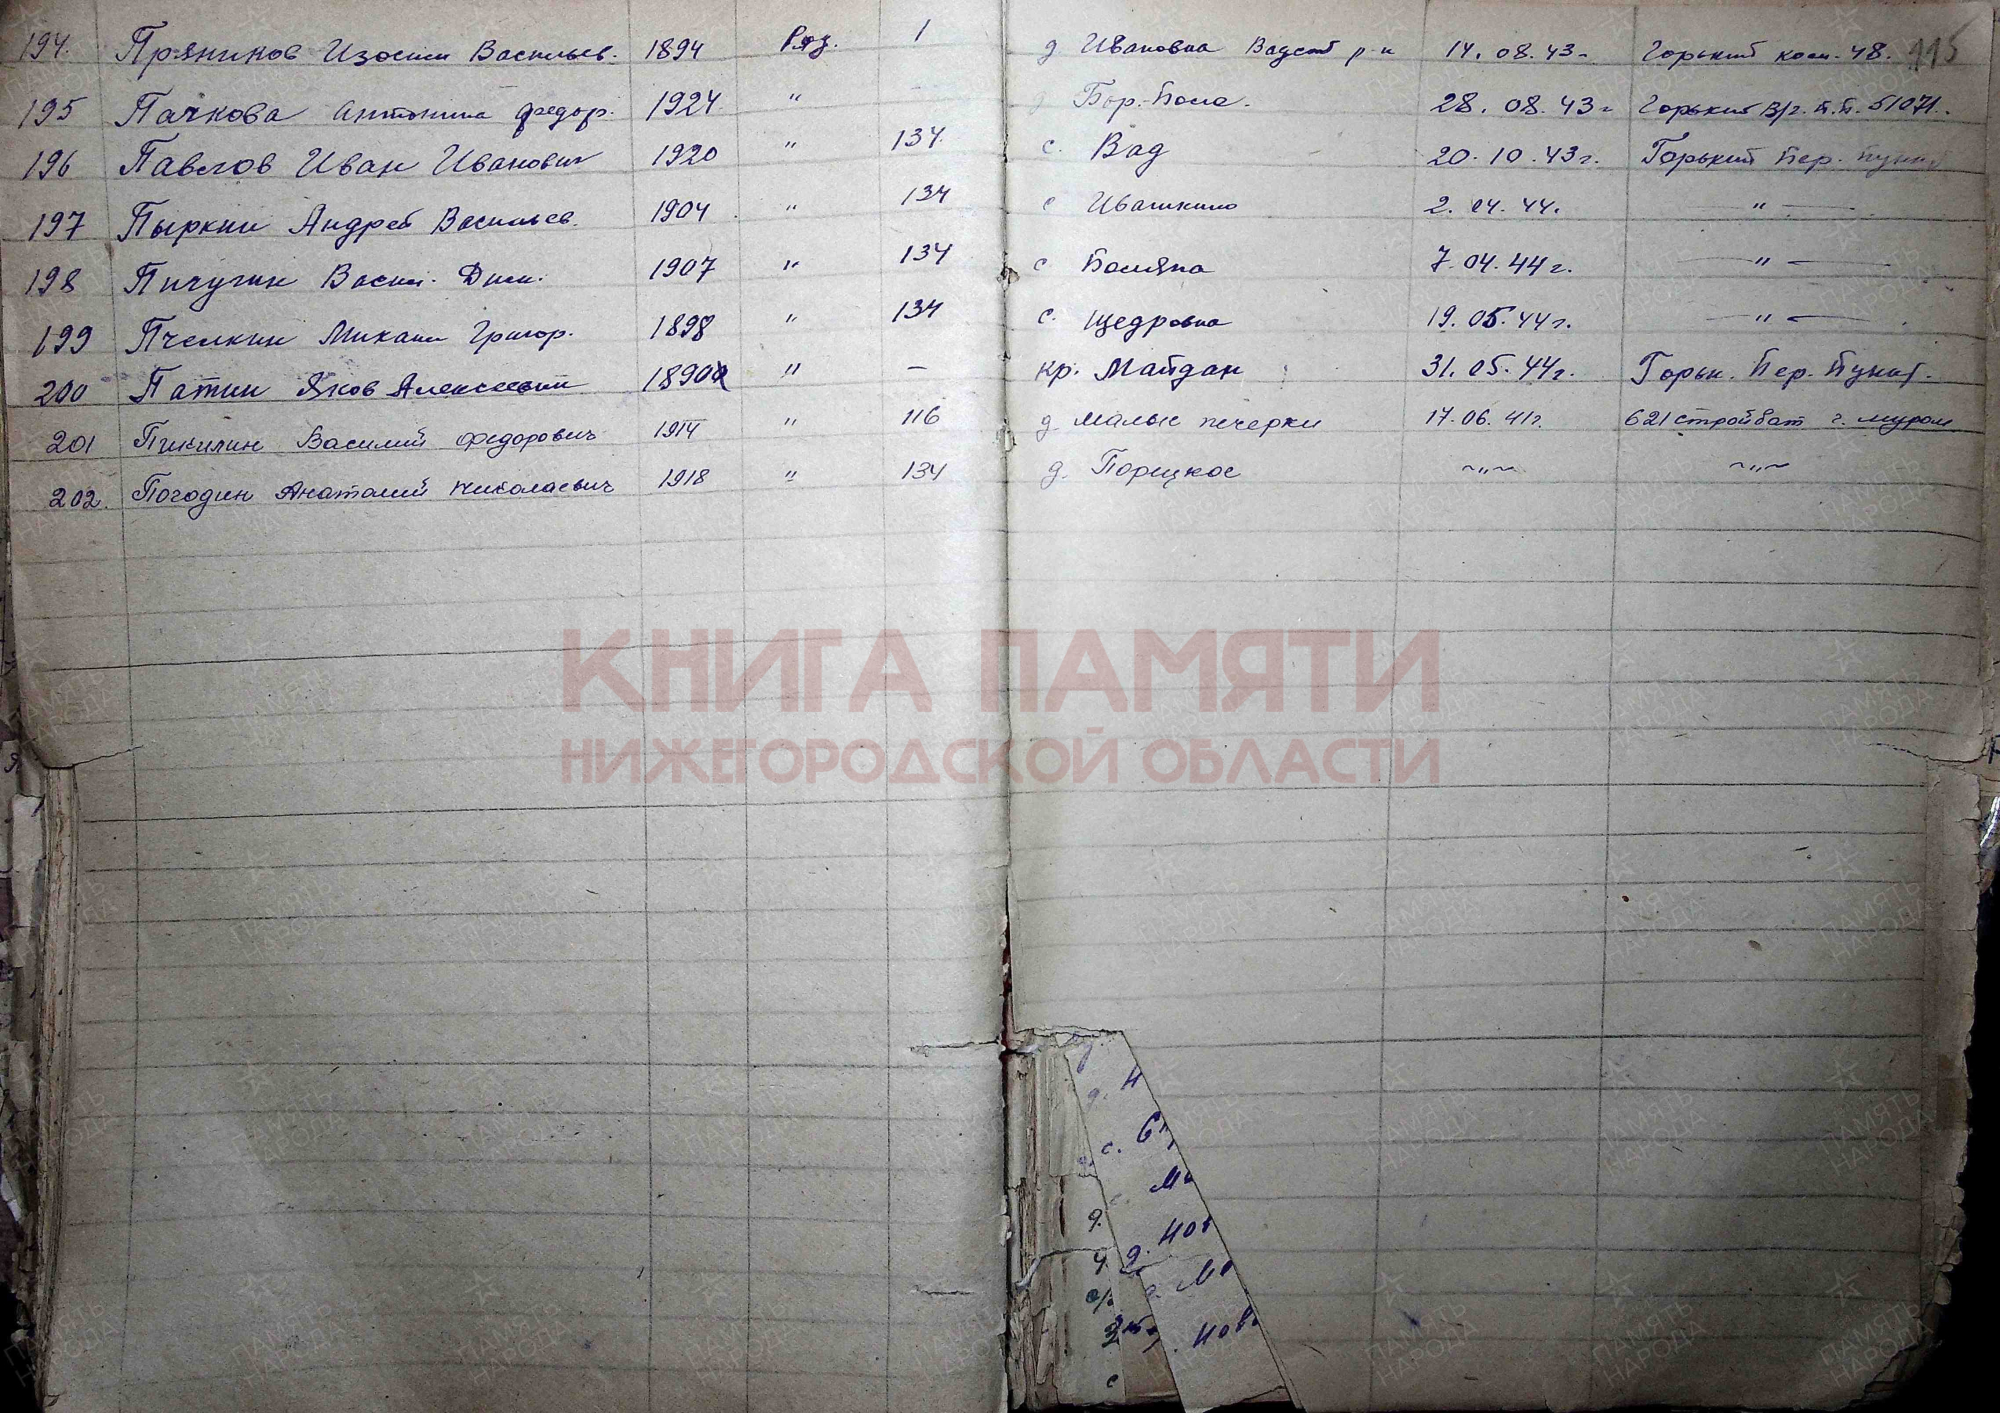 194. Пряников Изосим Васильев. 1894 Ряд. 1 д Ивановка Вадский р-н 14.08.43г. Горький ком. 48. 115
195 Пачкова Антонина Федор. 1924 " Бор. Поля. 28.08.43г Горький В/г. П.П. 51071.
196 Павлов Иван Иванович 1920 " 134. с. Вад 20.10.43г. Горький Пер. Пункт
197 Пыркин Андрей Васильев. 1904 " 134 с Ивашкино 2.04.44. — " —
198 Пичугин Васил. Дми. 1907 " 134 с Поляна 7.04.44г. — " —
199 Пчелкин Михаил Григор. 1898 " 134 с. Щедровка 19.05.44г. — " —
200 Патин Яков Алексеевич 1890 " — Кр. Майдан 31.05.44г. Горьк. Пер. Пункт.
201 Пикилин Василий Федорович 1914 " 116 д. Малые Печерки 17.06.41г. 621 стройбат г. Муром
202. Погодин Анатолий Николаевич 1918 " 134 д. Порецкое ~"~ ~"~
КНИГА ПАМЯТИ
НИЖЕГОРОДСКОЙ ОБЛАСТИ
д. Н
с.
Ми
д. Нов
Ма
Нов
ПАМЯТЬ
НАРОДА